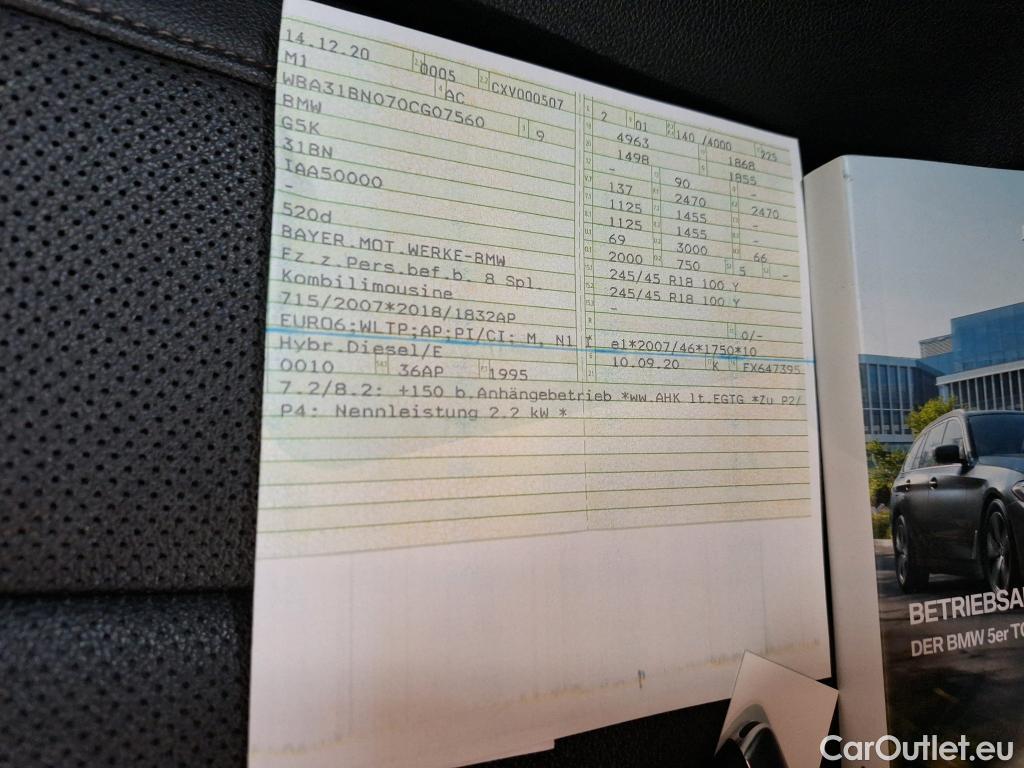 14.12.20 0005 CXV000507
M1 AC
WBA31BN070CG07560 9
BMW
G5K
31BN
IAA50000
-
520d
BAYER.MOT.WERKE-BMW
Fz.z.Pers.bef.b. 8 Spl.
Kombilimousine
715/2007*2018/1832AP
EURO6;WLTP;AP;PI/CI; M, N1 I
Hybr.Diesel/E
0010 36AP 1995
2 01 140 /4000 225
4963 1868
1498 1855
- 90 -
137 2470 2470
1125 1455 -
1125 1455 -
69 3000 66
2000 750 5 -
245/45 R18 100 Y
245/45 R18 100 Y
-
0/-
e1*2007/46*1750*10
10.09.20 K FX647395
7.2/8.2: +150 b.Anhängebetrieb *ww.AHK lt.EGTG *Zu P2/
P4: Nennleistung 2.2 kW *
BETRIEBSA
DER BMW 5er TO
CarOutlet.eu